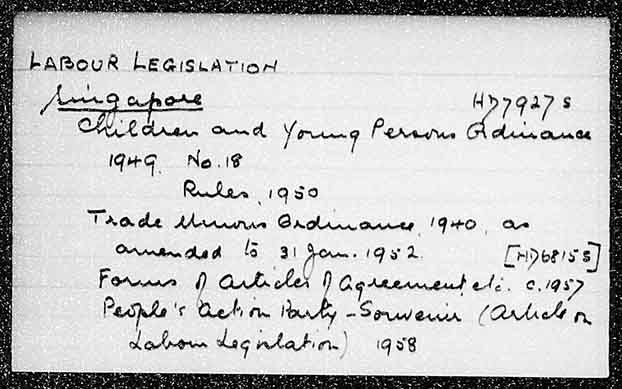 LABOUR LEGISLATION
Singapore HD7927 S
Children and Young Persons Ordinance
1949. No. 18
Rules, 1950
Trade Unions Ordinance, 1940, as
amended to 31 Jan. 1952. [HD6815 S]
Forms of Articles of Agreement etc. c.1957
People's Action Party - Souvenir (Article on
Labour Legislation) 1958